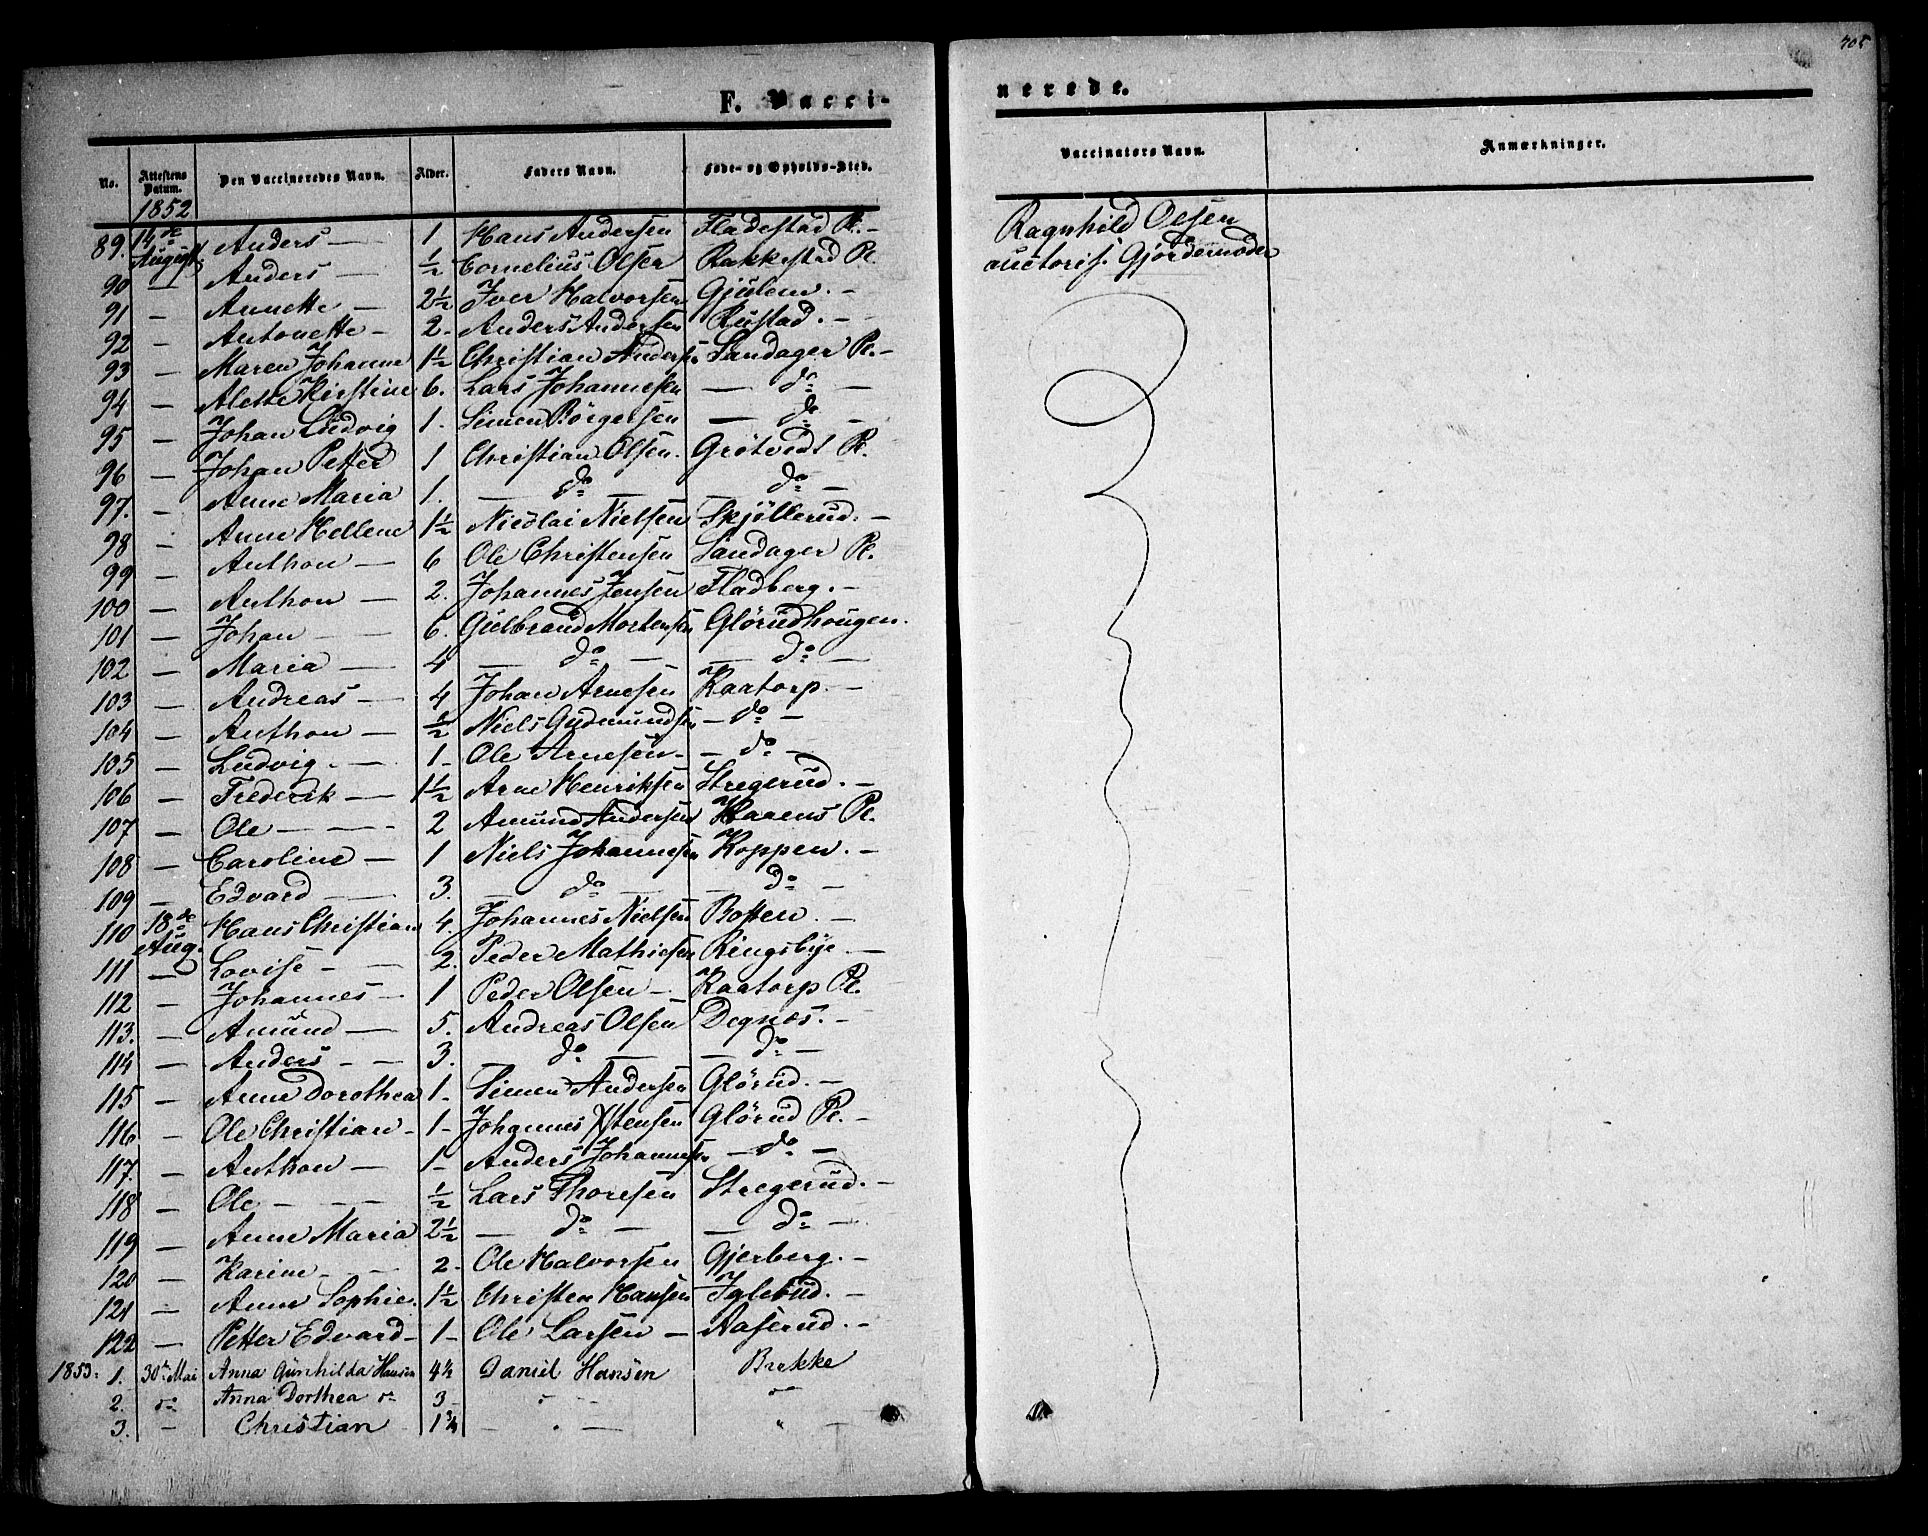 705
F. Vacci-
nerede.
No. Attestens Datum. Den Vaccineredes Navn. Alder. Faders Navn. Føde- og Opholds-Sted. Vaccinators Navn. Anmærkninger.
1852
89. 14de August Anders — 1 Hans Andersen Fladestad Pl. — Ragnhild Olsen
90 — Anders — ½ Cornelius Olsen Rakkestad Pl. auctoris. Gjordemoder
91 — Annette — 2½ Iver Halvorsen Gjulem. —
92 — Antonette — 2 - Anders Andersen Rustad. —
93 — Maren Johanne 1½ Christian Anders. Sandager Pl. —
94 — Alette Kirstine 6. Lars Johannesen — do —
95 — Johan Ludvig 1. Simen Børgersen — do —
96 — Johan Petter 1 Christian Olsen. Grøtvedt Pl.
97. — Anne Maria 1. — do — — do —
98 — Anne Hellene 1½ Nicolai Nielsen Skjøllerud. —
99 — Anthon — 6 Ole Christensen Sandager Pl.
100 — Anthon — 2. Johannes Jensen Fladberg. —
101 — Johan — 6. Gulbrand Mortensen Glørudhougen.
102 — Maria — 4 — do — — do —
103 — Andreas — 4 Johan Arnesen Kaatorp. —
104 — Anthon — ½ Niels Gudmundsen — do —
105 — Ludvig. — 1 - Ole Arnesen — do —
106 — Frederik — 1½ Arne Henriksen Stregerud. —
107 — Ole — 2 Amund Andersen Haaens Pl.
108 — Caroline — 1 Niels Johannesen Koppen. —
109 — Edvard — 3. — do — — do —
110 18de Aug. Hans Christian 4. Johannes Nielsen Botten. —
111 — Lovise — 2. Peder Mathiesen Ringsbye. —
112 — Johannes — 1 Peder Olsen — Kaatorp Pl.
113. — Amund — 5. Andreas Olsen Degnæs. —
114 — Anders — 3. — do — — do —
115 — Anne Dorothea 1 - Simen Andersen Glørud. —
116 — Ole Christian - 1 - Johannes Stensen Glørud Pl. —
117. — Anthon — 1 - Anders Johannes. — do —
118 — Ole — ½ Lars Thoresen Stregerud. —
119 — Anne Maria 2½ — do — — do —
120 — Karine — 2 - Ole Halvorsen Gjerberg. —
121 — Anne Sophie. 1½ Christen Hansen Iglebud. —
122 — Petter Edvard - 1 - Ole Larsen — Aaserud. —
1853. 1. 30te Mai Anna Gunhilda Hansen 4¼ Daniel Hansen Brekke
2. do Anna Dorthea do 3 - " — "
3. — Christian 1¾ — " — "